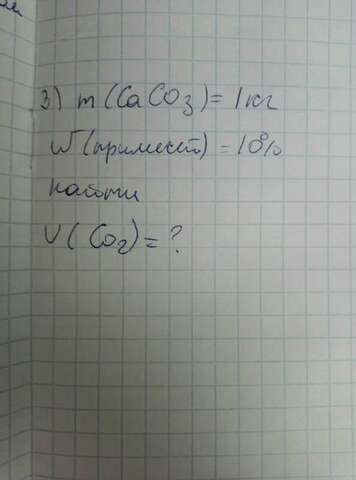 3) m(CaCO3)=1кг
W(примесей)=10%
найти
V(CO2)=?